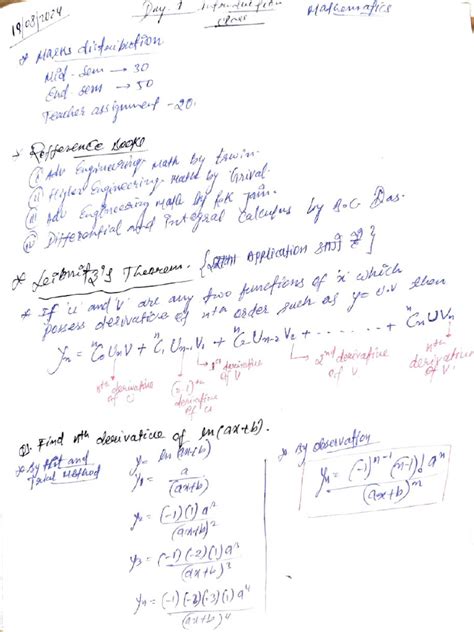 19/08/2024
Day-1 Introduction class
Mathematics
* Marks distribution
Mid-Sem → 30
End-Sem → 50
Teacher assignment - 20.
→ Refference Books
(i) Adv Engineering Math by Erwin.
(ii) Higher Engineering Math by Grival.
(iii) Adv Engineering Math by R.K Jain.
(iv) Differential and Integral Calculus by B.C Das.
* Leibnitz's Theorem. { Application }
* If 'u' and 'v' are any two functions of 'x' which
possess derivative of nth order such as y = u.v then
yₙ = ⁿC₀UₙV + ⁿC₁Uₙ₋₁V₁ + ⁿC₂Uₙ₋₂V₂ + ....... + ⁿCₙUVₙ
nth derivative of U
(n-1)th derivative of U
1st derivative of V
2nd derivative of V
nth derivative of V
Q. Find nth derivative of ln(ax+b).
* By Hit and Trial Method
y = ln(ax+b)
y₁ = a/(ax+b)
y₂ = (-1)(1)a²/(ax+b)²
y₃ = (-1)(-2)(1)a³/(ax+b)³
y₄ = (-1)(-2)(-3)(1)a⁴/(ax+b)⁴
* By observation
yₙ = (-1)ⁿ⁻¹(n-1)! aⁿ/(ax+b)ⁿ